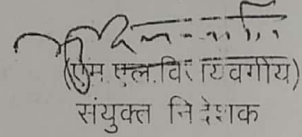 (एम.एल.विजयवर्गीय)
संयुक्त निदेशक